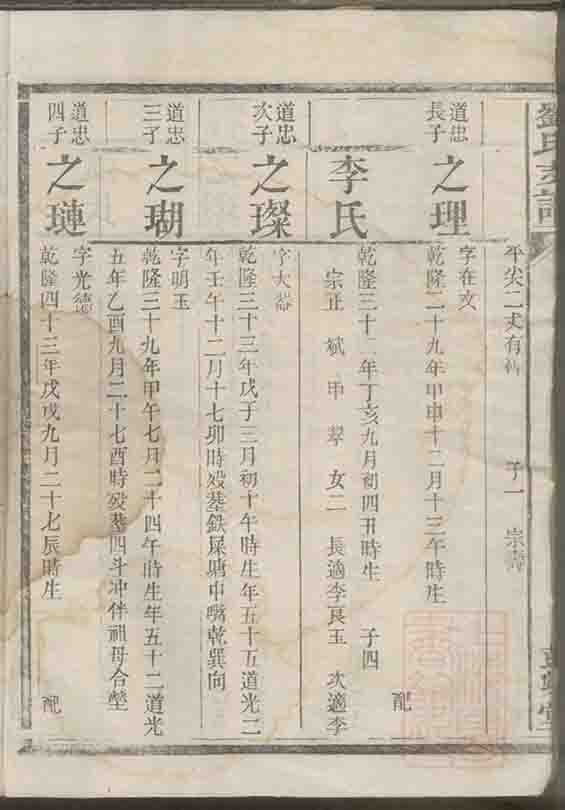 平尖二丈有 子一 宗壽
道忠
長子
之理
字在文
乾隆二十九年甲申十二月十三午時生 配
李氏
乾隆三十二年丁亥九月初四丑時生 子四
宗正 斌 甲 翠 女二 長適李良玉 次適李
道忠
次子
之璨
字大
乾隆三十三年戊子三月初十午時生年五十五道光二
年壬午十二月十七卯時歿塟鉄屎塘中嘴乾巽向
道忠
三子
之瑚
字明玉
乾隆三十九年甲午七月二十四午時生年五十二道光
五年乙酉九月二十七酉時歿塟四斗冲伴祖母合塋
道忠
四子
之璉
字光德
乾隆四十三年戊戌九月二十七辰時生 配